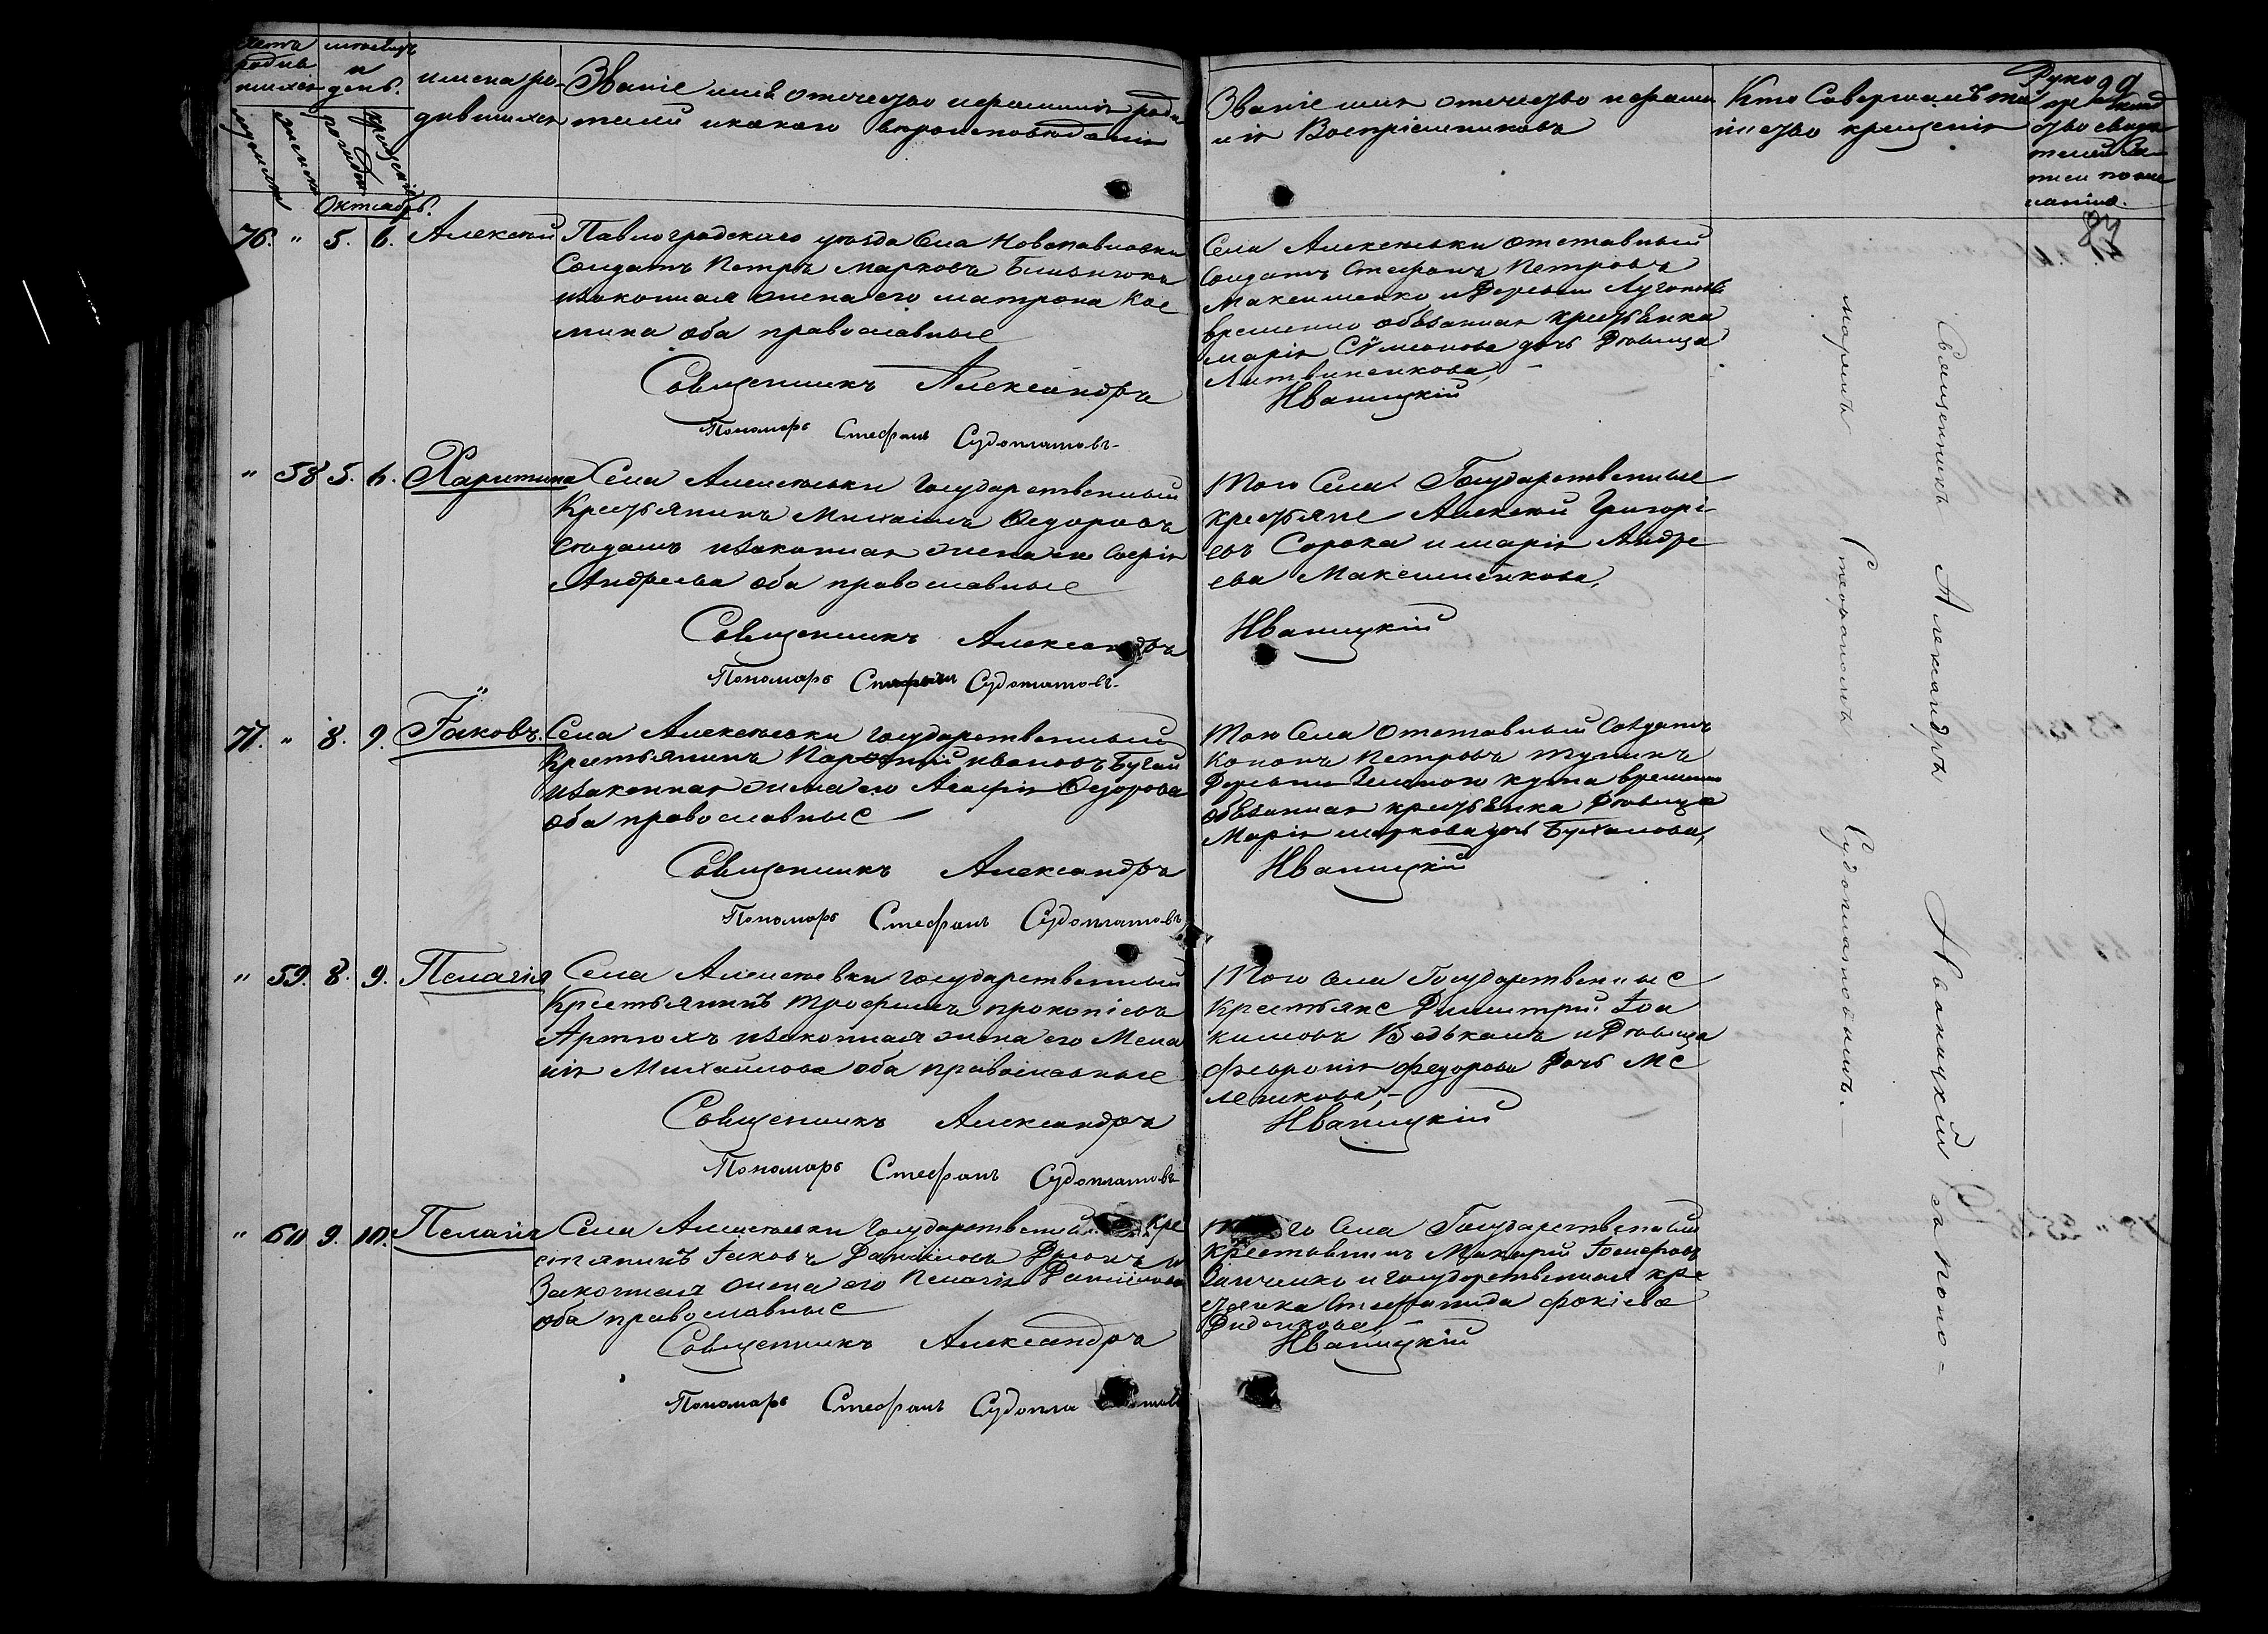 Счетъ родившихся
мѣсяцъ и день.
имена родившихся
Званіе имя отчество и фамилія родителей и какого вѣроисповѣданія
Званіе имя отчество и фамилія Воспріемниковъ
Кто Совершалъ таинство крещенія
мужеска
женска
рожденія
крещенія
Октябрь.
76. " 5. 6. Алексѣй
Павлоградскаго уѣзда Села Новопавловки
Солдатъ Петръ Марковъ
изаконная жена его матрона Кос
мина оба православные
Села Алексѣевки отставный
Солдатъ Стефанъ Петровъ
Максименко и Деревни
временно обязанная крестьянка
марія Сѵмеонова дочь Дѣвица
Литвиненкова,
Священникъ Александръ Иваницкій
Пономарь Стефанъ Судоплатовъ
" 58 5. 6. Харитина
Села Алексѣевки государственный
Крестьянинъ Михаилъ Ѳедоровъ
изаконная жена его Софія
Андреева оба православные
Того Села Государственные
крестьяне Алексѣй Григорі
евъ Сорока и марія Андре
ева Максименкова,
Священникъ Александръ Иваницкій
Пономарь Стефанъ Судоплатовъ
77. " 8. 9. Іаковъ
Села Алексѣевки государственный
Крестьянинъ Ивановъ Бугай
изаконная жена его Агафія Ѳедорова
оба православные
Того Села Отставный Солдатъ
Кононъ Петровъ
Деревни Зеленого кута временно
обязанная крестьянка Дѣвица
Марія маркова дочь
Священникъ Александръ Иваницкій
Пономарь Стефанъ Судоплатовъ
" 59. 8. 9. Пелагія
Села Алексѣевки государственный
Крестьянинъ Трофимъ прокопіевъ
Артюхъ изаконная жена его Мела
нія Михайлова оба православные
Того Села Государственные
Крестьяне Димитрій Іоа
кимовъ и Дѣвица
Февронія Федорова Дочь
Священникъ Александръ Иваницкій
Пономарь Стефанъ Судоплатовъ
" 60 9. 10. Пелагія
Села Алексѣевки государственный Кре
стянинъ Іаковъ Даниловъ и
Законная жена его Пелагія
оба православные
того Села Государственный
крестьянинъ Макарій
и государственная кре
стянка Стефанида фокіева
Диденкова,
Священникъ Александръ Иваницкій
Пономарь Стефанъ Судоплатовъ
Священникъ Александръ Иваницкій съ поно=
маремъ Стефаномъ Судоплатовымъ.